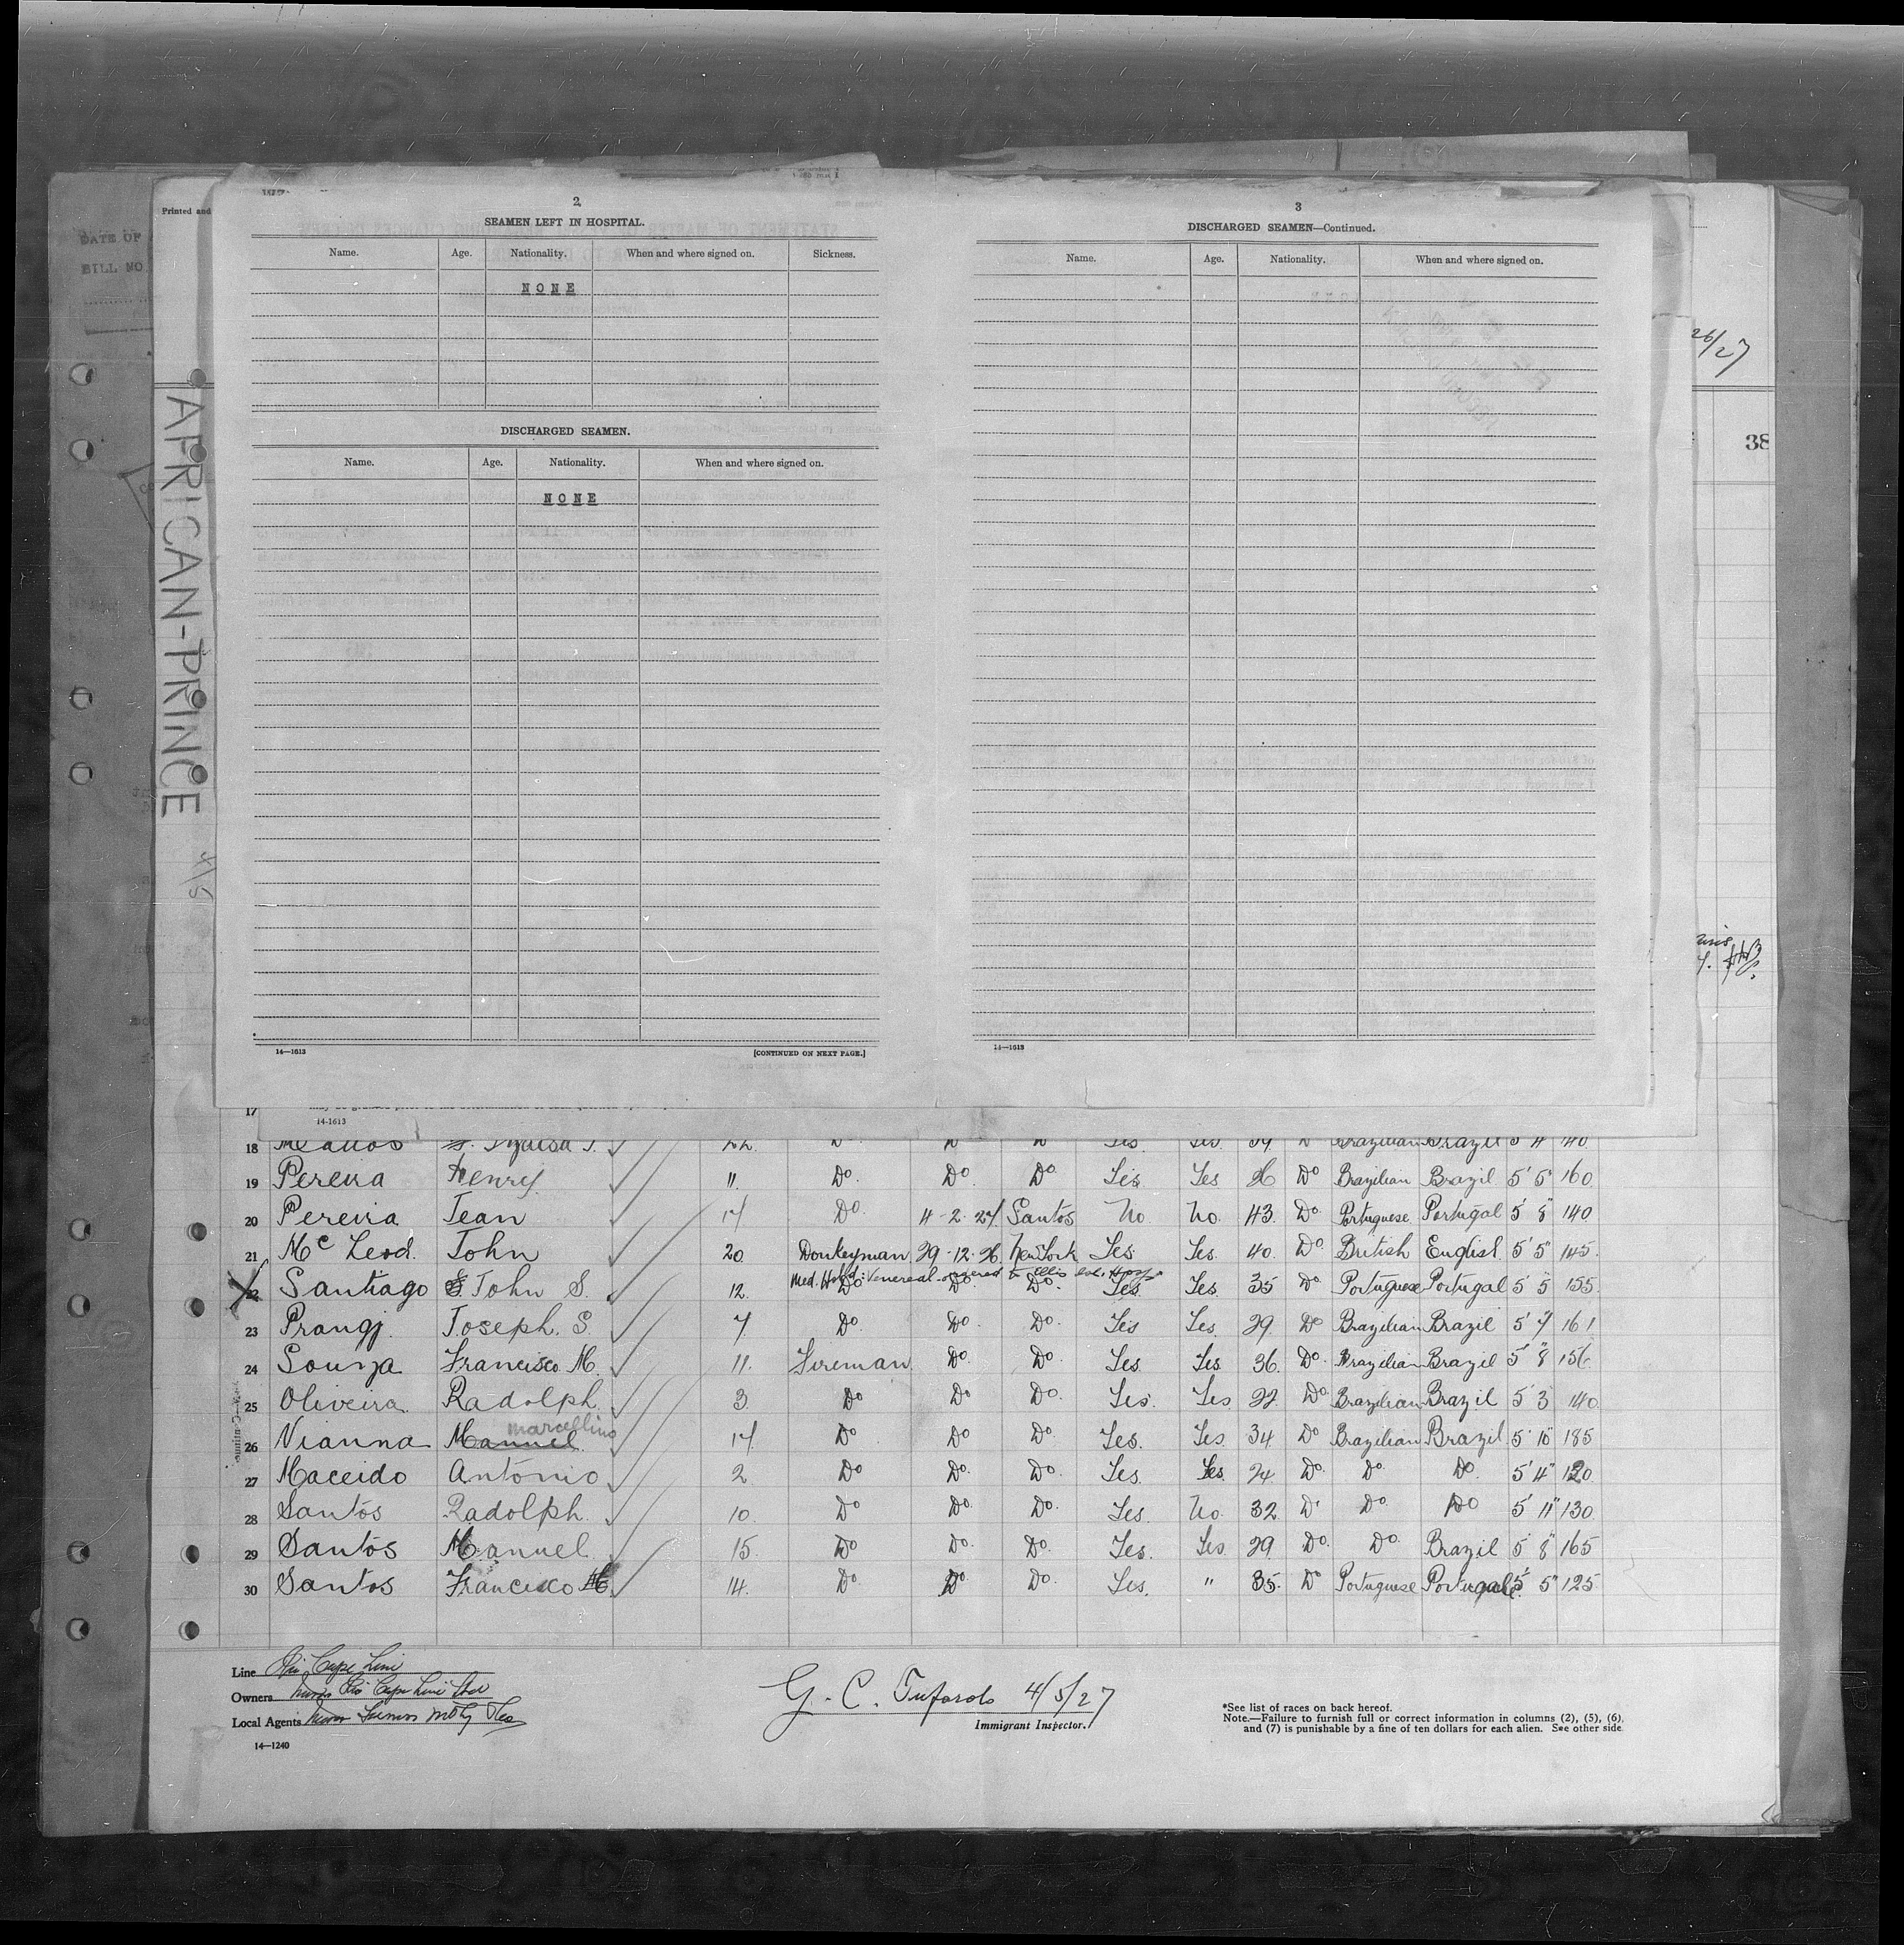 Printed and
DATE OF
BILL NO.
AFRICAN-PRINCE
4/5
2
SEAMEN LEFT IN HOSPITAL.
Name. Age. Nationality. When and where signed on. Sickness.
NONE
DISCHARGED SEAMEN.
Name. Age. Nationality. When and where signed on.
NONE
14—1613 [CONTINUED ON NEXT PAGE.]
3
DISCHARGED SEAMEN—Continued.
Name. Age. Nationality. When and where signed on.
14—1613
26/27
38
17
14-1613
18 Brazilian Brazil 5' 4" 140
19 Pereira Henry 11. Do. Do. Do Yes Yes 26 Do Brazilian Brazil 5' 5" 160
20 Pereira Jean 17 Do. 4-2-27. Santos No. No. 43. Do Portuguese Portugal 5' 8" 140
21 Mc Leod. John 20. Donkeyman 29-12-26. New York Yes Yes. 40. Do. British English 5' 5" 145.
Med. Hold: Venereal ordered to Ellis Isl. Hosp
22 Santiago John S. 12. Do Do. Do. Yes Yes. 35 Do Portuguese Portugal 5' 5" 155.
23 Prangj. Joseph. S. 7 Do. Do. Do. Yes Yes. 29. Do Brazilian Brazil 5' 7" 161
24 Souza Francisco M. 11. Fireman. Do. Do. Yes. Yes. 36. Do. Brazilian Brazil 5' 8" 156
25 Oliveira Radolph. 3. Do Do Do. Yes. Yes 22. Do. Brazilian Brazil 5' 3" 140
marcellino
26 Vianna Manuel. 17 Do Do Do. Yes. Yes. 34 Do Brazilian Brazil 5' 10" 185
27 Maceido Antonio 2 Do Do. Do. Yes. Yes. 24. Do. Do. Do. 5' 4" 120.
28 Santos Radolph. 10. Do Do. Do. Yes. No. 32. Do Do Do 5' 11" 130.
29 Santos Manuel 15. Do Do. Do. Yes. Yes. 29. Do. Do. Brazil 5' 8" 165
30 Santos Francisco M. 14. Do. Do. Do. Yes. " 35. Do Portuguese Portugal 5' 5" 125
Line Rio Cape Line
Owners Rio Cape Line Ltd
Local Agents Furness
14—1240
G. C. Tufarolo 4/5/27
Immigrant Inspector.
*See list of races on back hereof.
Note.—Failure to furnish full or correct information in columns (2), (5), (6),
and (7) is punishable by a fine of ten dollars for each alien. See other side.